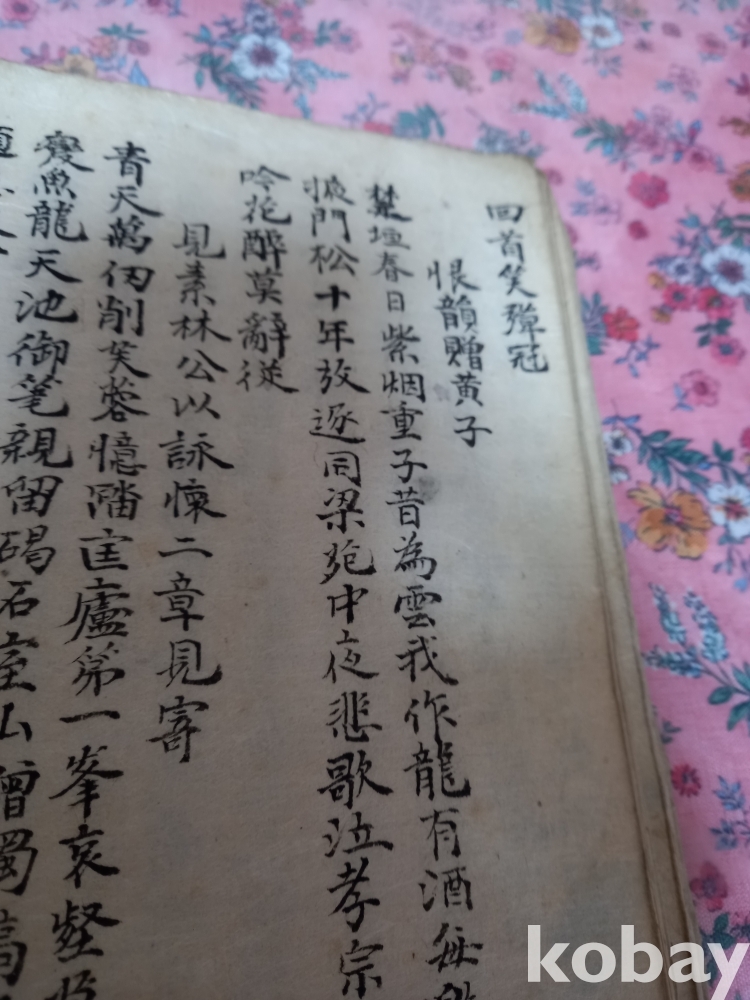 回首笑彈冠
恨韻贈黃子
楚垣春日紫烟重子昔為雲我作龍有酒每
掖門松十年放逐同梁苑中夜悲歌泣孝宗
吟花醉莫辭從
見素林公以詠懷二章見寄
青天萬仞削芙蓉憶躋匡廬第一峯哀壑
變魚龍天池御笔親留碣石室山僧獨
kobay